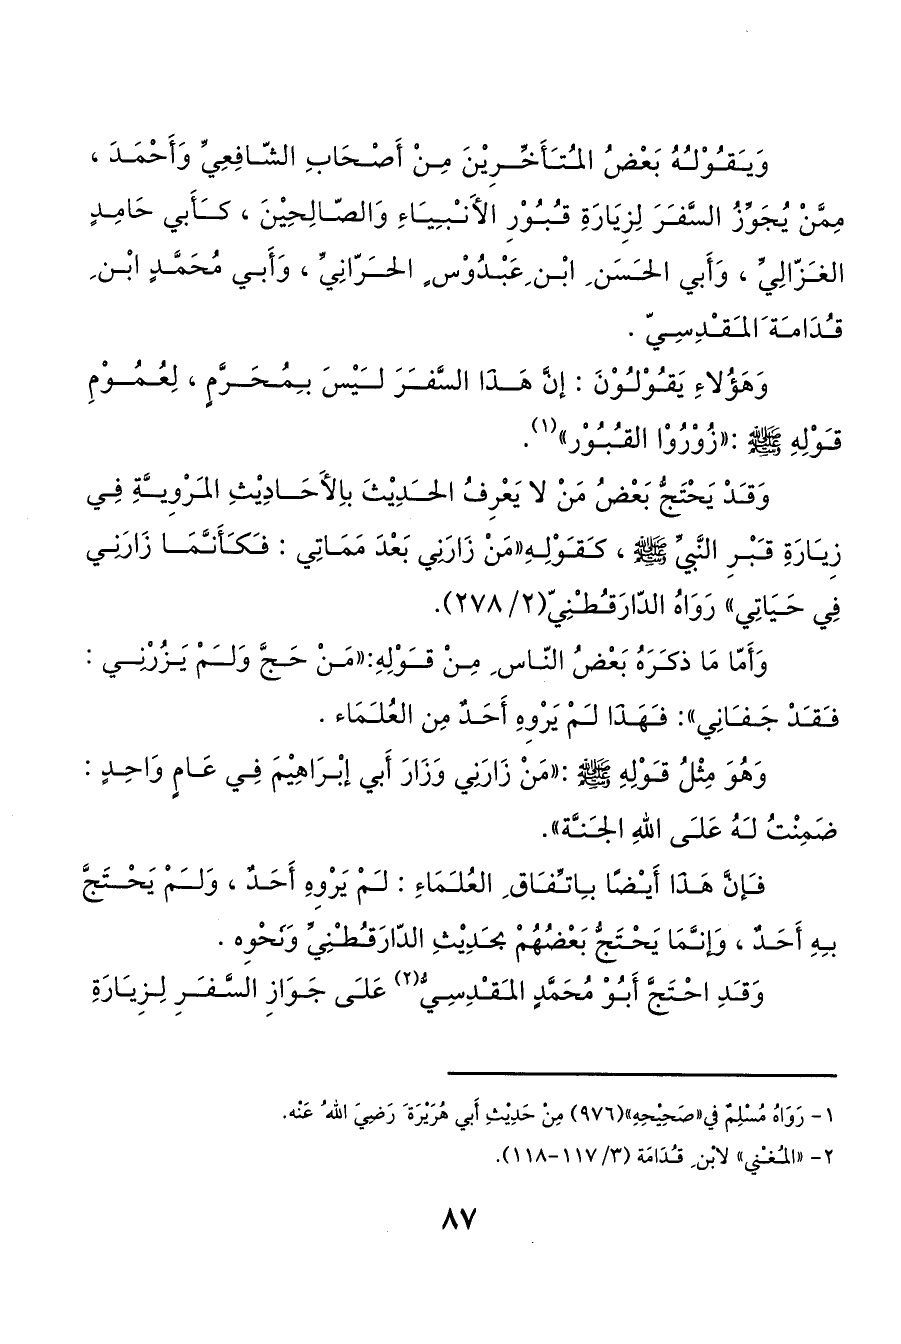 وَيَقُوْلُهُ بَعْضُ المُتَأَخِّرِيْنَ مِنْ أَصْحَابِ الشَّافِعِيِّ وَأَحْمَدَ ،
مِمَّنْ يُجَوِّزُ السَّفَرَ لِزِيَارَةِ قُبُوْرِ الأَنْبِيَاءِ وَالصَّالِحِيْنَ ، كَأَبي حَامِدٍ
الغَزّالِيِّ ، وَأَبي الحَسَنِ ابْنِ عَبْدُوْسٍ الحَرّانِيِّ ، وَأَبي مُحَمَّدٍ ابْنِ
قُدَامَةَ المَقْدِسِيِّ .
وَهَؤُلاءِ يَقُوْلُوْنَ : إنَّ هَذَا السَّفَرَ لَيْسَ بِمُحَرَّمٍ ، لِعُمُوْمِ
قَوْلِهِ ﷺ :«زُوْرُوْا القُبُوْرَ»(١).
وَقَدْ يَحْتَجُّ بَعْضُ مَنْ لا يَعْرِفُ الحَدِيْثَ بِالأَحَادِيْثِ المَرْوِيَّةِ فِي
زِيَارَةِ قَبْرِ النَّبِيِّ ﷺ ، كَقَوْلِهِ«مَنْ زَارَنِي بَعْدَ مَمَاتِي : فَكَأَنَّمَا زَارَنِي
فِي حَيَاتِي» رَوَاهُ الدّارَقُطْنِيّ(٢/ ٢٧٨).
وَأَمّا مَا ذكَرَهُ بَعْضُ النّاسِ مِنْ قَوْلِهِ:«مَنْ حَجَّ وَلَمْ يَزُرْنِي :
فَقَدْ جَفَانِي»: فَهَذَا لَمْ يَرْوِهِ أَحَدٌ مِن العُلَمَاء .
وَهُوَ مِثْلُ قَوْلِهِ ﷺ :«مَنْ زَارَنِي وَزَارَ أَبي إبْرَاهِيْمَ فِي عَامٍ وَاحِدٍ :
ضَمِنْتُ لَهُ عَلَى اللهِ الجَنَّة».
فَإنَّ هَذَا أَيْضًا بِاتِّفَاقِ العُلَمَاءِ : لَمْ يَرْوِهِ أَحَدٌ ، وَلَمْ يَحْتَجَّ
بِهِ أَحَدٌ ، وَإنَّمَا يَحْتَجُّ بَعْضُهُمْ بحَدِيْثِ الدّارَقُطْنِيِّ وَنَحْوِه .
وَقَدِ احْتَجَّ أَبُوْ مُحَمَّدٍ المَقْدِسِيُّ(٢) عَلَى جَوَازِ السَّفَرِ لِزِيَارَةِ
١- رَوَاهُ مُسْلِمٌ في«صَحِيْحِهِ»(٩٧٦) مِنْ حَدِيْثِ أَبي هُرَيْرَةَ رَضِيَ اللهُ عَنْه.
٢- «المُغْني» لابْنِ قُدَامَة (٣/ ١١٧-١١٨).
٨٧